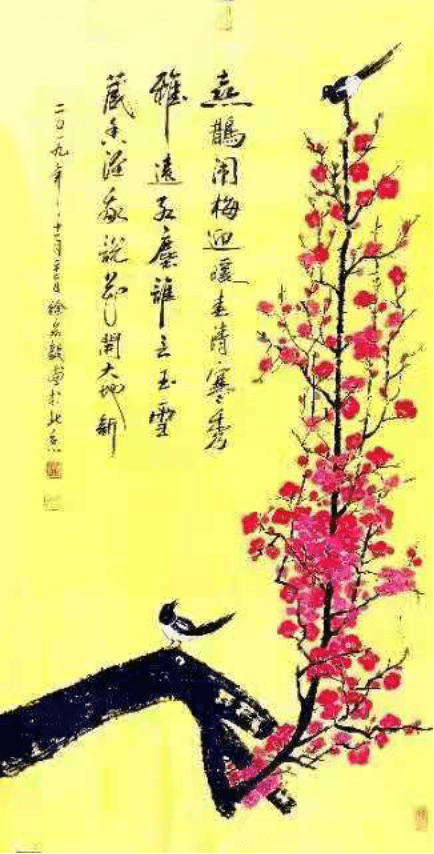 喜鵲闹梅迎暖春清寒秀
雅遠红塵誰言玉雪
藏香說花開大地新
二〇一九年十一月日徐画於北京